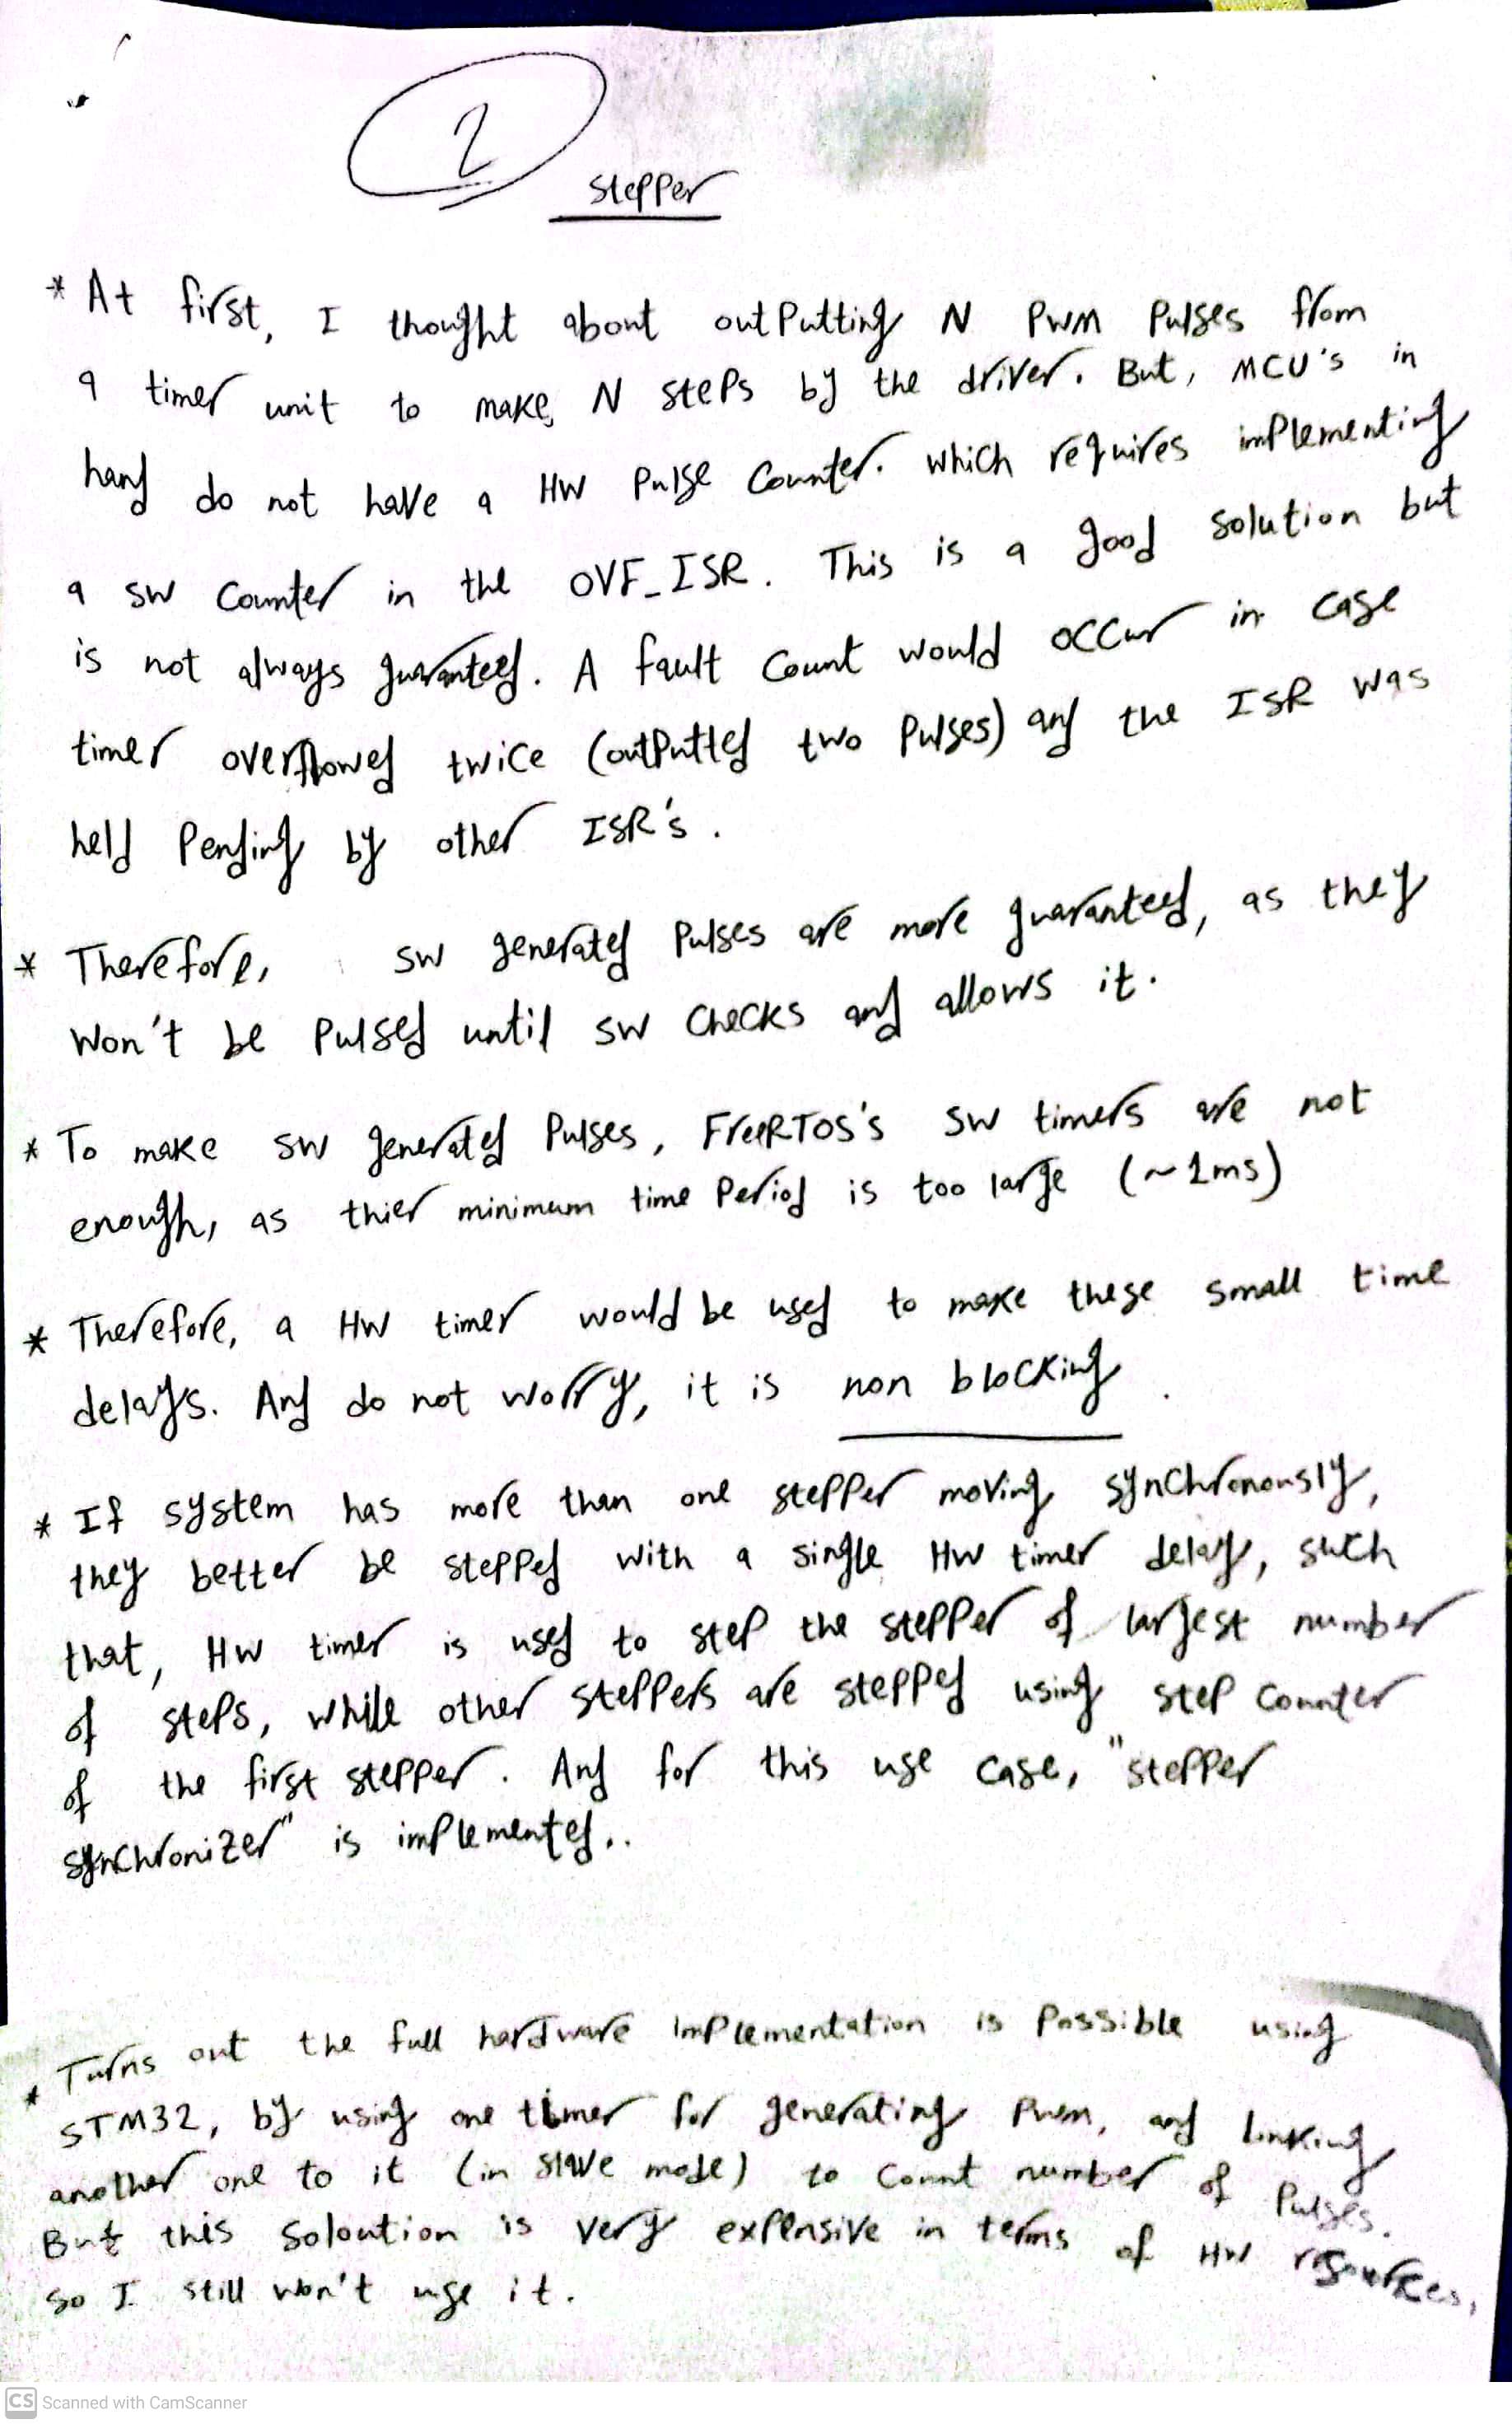 2
Stepper
* At first, I thought about outputting N PWM Pulses from
a timer unit to make N steps by the driver. But, MCU's in
hand do not have a HW Pulse Counter. Which requires implementing
a SW Counter in the OVF_ISR. This is a good solution but
is not always guaranteed. A fault Count would occur in case
timer overflowed twice (outputted two Pulses) and the ISR was
held Pending by other ISR's.
* Therefore, SW generated Pulses are more guaranteed, as they
Won't be Pulsed until SW Checks and allows it.
* To make SW generated Pulses, FreeRTOS's SW timers are not
enough, as thier minimum time Period is too large (~1ms)
* Therefore, a HW timer would be used to make these small time
delays. And do not worry, it is non blocking.
* If system has more than one stepper moving synchronously,
they better be stepped with a single HW timer delay, such
that, HW timer is used to step the stepper of largest number
of steps, while other steppers are stepped using step Counter
of the first stepper. And for this use case, "stepper
synchronizer" is implemented..
* Turns out the full hardware implementation is Possible using
STM32, by using one timer for generating Pwm, and linking
another one to it (in slave mode) to Count number of Pulses.
But this Soloution is very expensive in terms of HW resources,
so I still won't use it.
CS Scanned with CamScanner